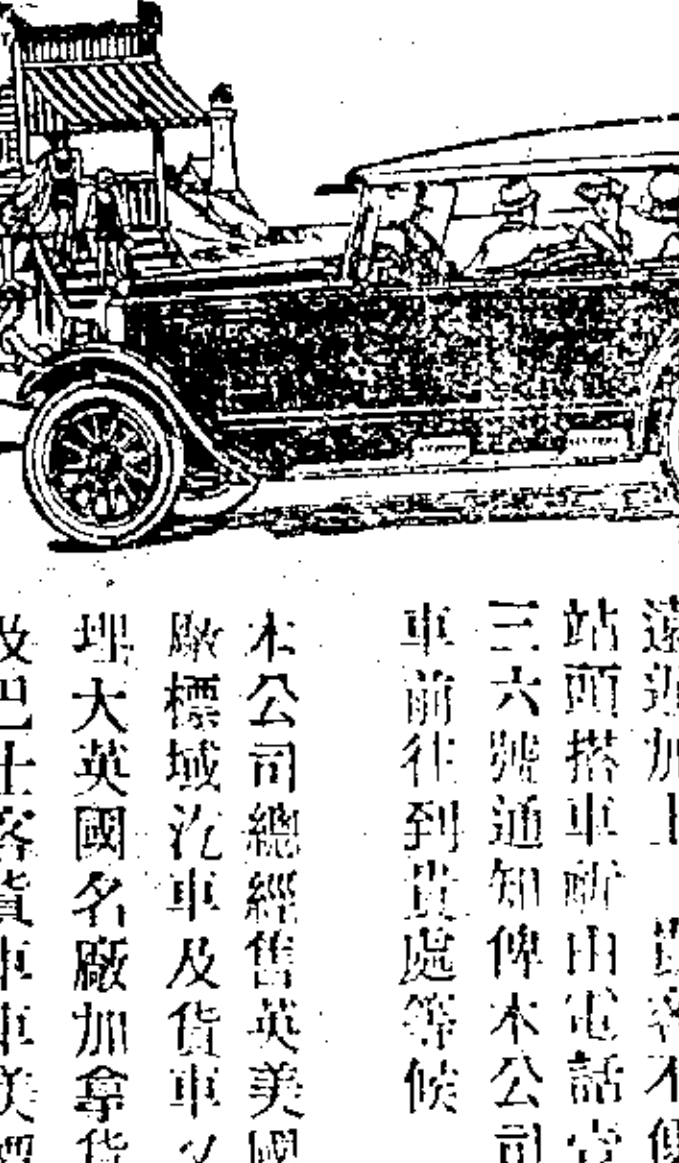 遠近加上 貴客不便
站頭搭車祈由電話壹
三六號通知俾本公司
車前往到貴處等候
本公司總經售英美國
廠標域汽車及貨車又
理大英國名廠加拿貨
及巴士客貨車車美